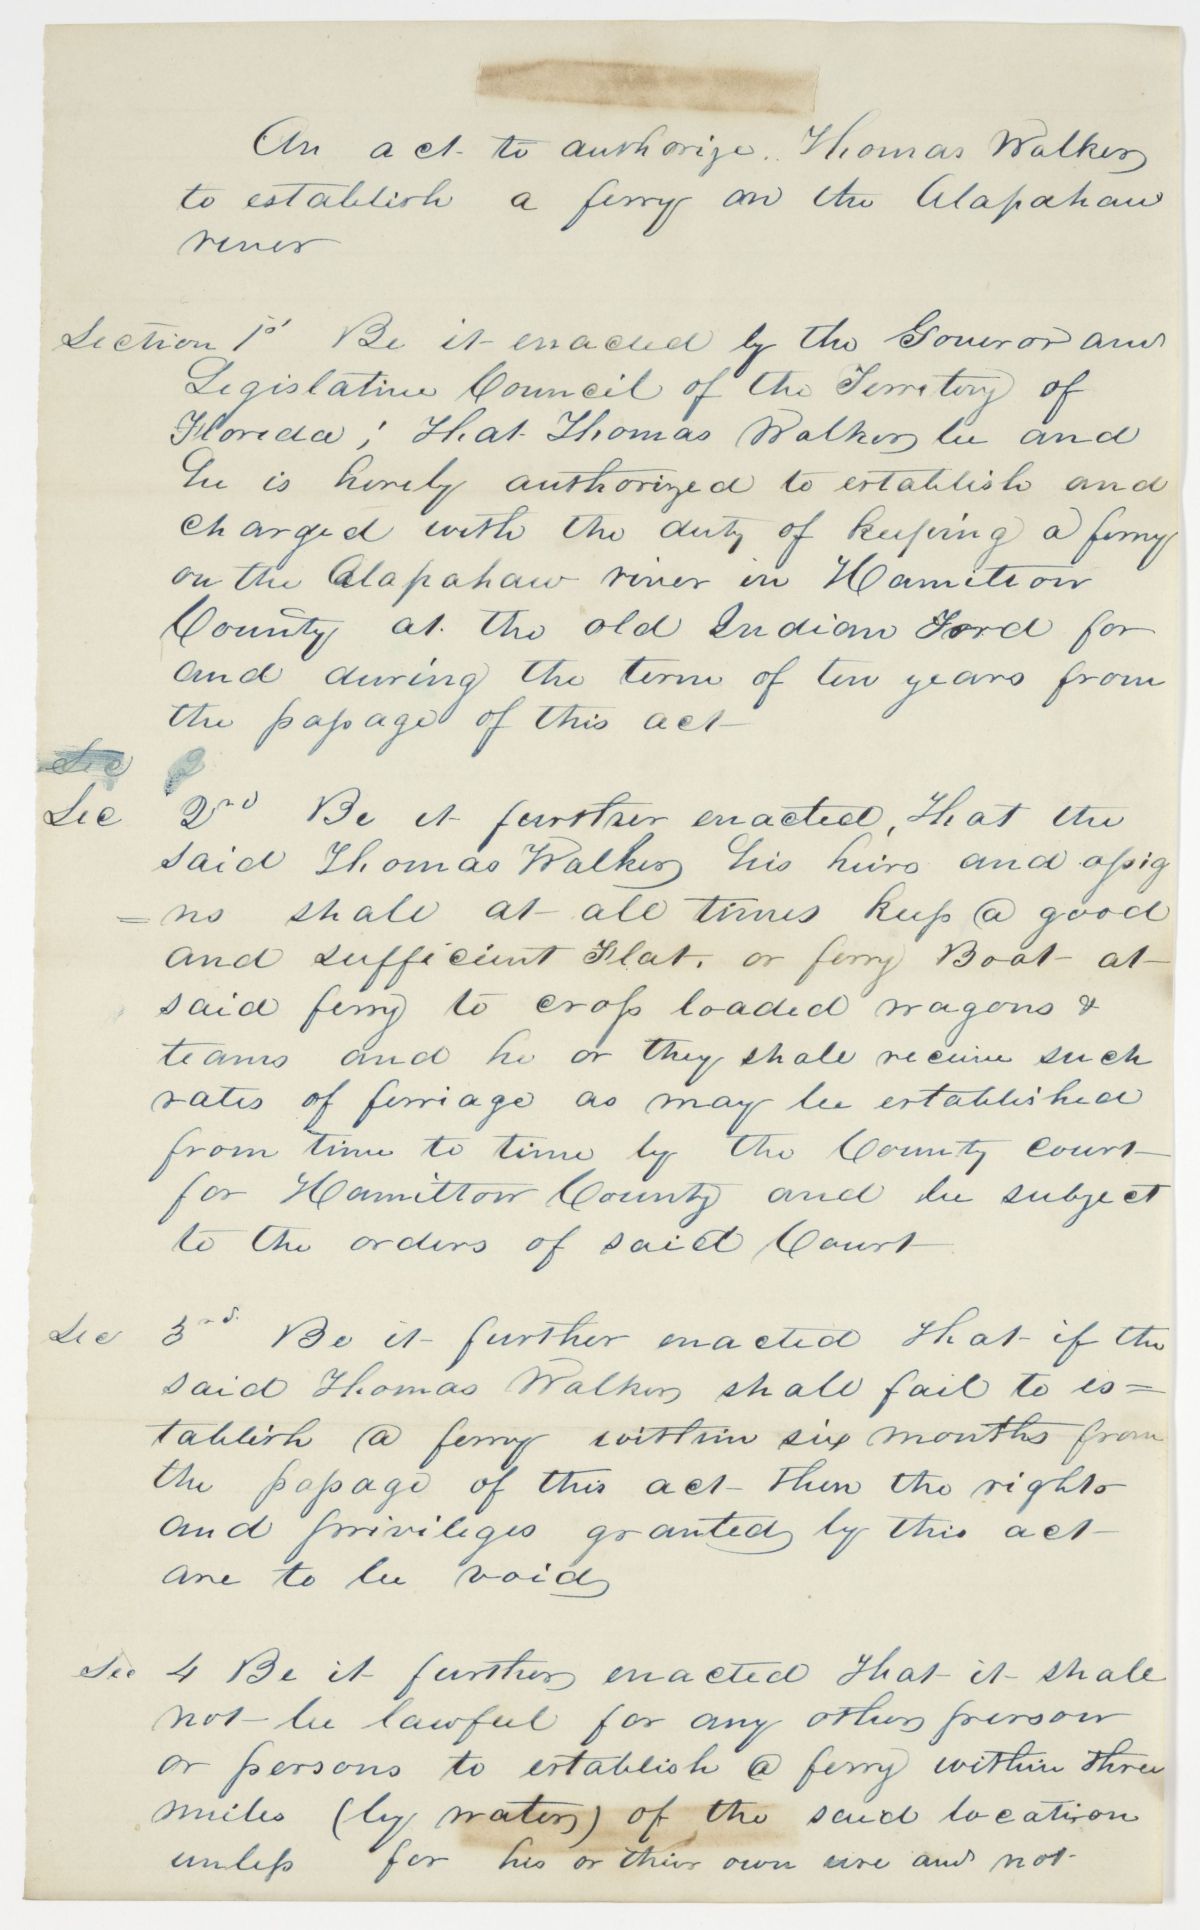 An act to authorize Thomas Walker
to establish a ferry on the Alapahaw
river
Section 1st Be it enacted by the Goveror and
Legislative Council of the Territory of
Florida; That Thomas Walker be and
he is hereby authorized to establish and
charged with the duty of keeping a ferry
on the Alapahaw river in Hamilton
County at the old Indian Ford for
and during the term of ten years from
the passage of this act
Sec 2
Sec 2nd Be it further enacted, That the
said Thomas Walker his heirs and assig
=ns shall at all times keep a good
and sufficient Flat. or ferry Boat at
said ferry to cross loaded wagons &
teams and he or they shall receive such
rates of ferriage as may be established
from time to time by the County court
for Hamilton County and be subject
to the orders of said Court
Sec 3rd Be it further enacted That if the
said Thomas Walker shall fail to es=
tablish a ferry within six months from
the passage of this act then the rights
and privileges granted by this act
are to be void
Sec 4 Be it further enacted That it shall
not be lawful for any other person
or persons to establish a ferry within three
miles (by water) of the said location
unless for his or their own use and not